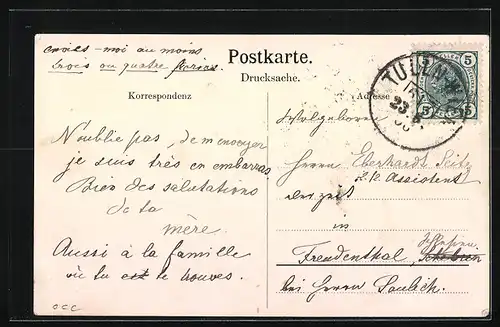 écris-moi au moins
trois ou quatre fois.
Postkarte.
Drucksache.
Korrespondenz
Adresse
5 5
5 5
TULLN
23
N'oublie pas, de m'envoyer
je suis très en embarras
Bien des salutations
de ta
mère.
Aussi à la famille
où tu est te trouves.
Wolgeboren
Herrn Eberhardt Seitz
k. k. Assistent
derzeit
in
Freudenthal,
Schlesien.
bei Herrn